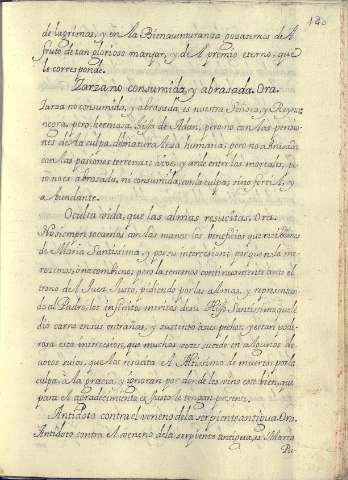 180
de lagrimas, y en la Bienaventuranza gozaremos del
fruto de tan glorioso manjar, y del premio eterno, que
le corresponde.
Zarza no consumida, y abrasada. Ora.
Zarza no consumida, y abrasada es nuestra Señora, y Reyna
negra, pero hermosa, Hija de Adan, pero no con las pensio
nes de la culpa, de naturaleza humana; pero no abrasada
con las pasiones terrenas: arde, y arde entre los mortales, pe
ro no es abrasada, ni consumida con la culpa, sino fertil, y
abundante.
Oculta vida, que las almas resucitas. Ora.
No siempre tocamos con las manos los beneficios que recibimos
de Maria Santissima, y por su intercesion; porque ni la me
recemos, ni one combines; pero la tenemos continuamente ante el
trono del Juez Justo, pidiendo por las almas, y representan
do al Padre los infinitos meritos de su Hijo Santissimo, que le
dio carne en sus entrañas, y sustento à sus pechos, y es tan pode
rosa esta intercesion, que muchas veces sucede en algunos de
votos suios, que los resucita el Altissimo de muertos por la
culpa, à la gracia, y ignoran por donde les vino este bien, que
para el agradecimiento es justo le tengan presente.
Antidoto contra el veneno de la serpiente antigua. Ora.
Antidoto contra el veneno de la serpiente antigua, es Maria
Pu-